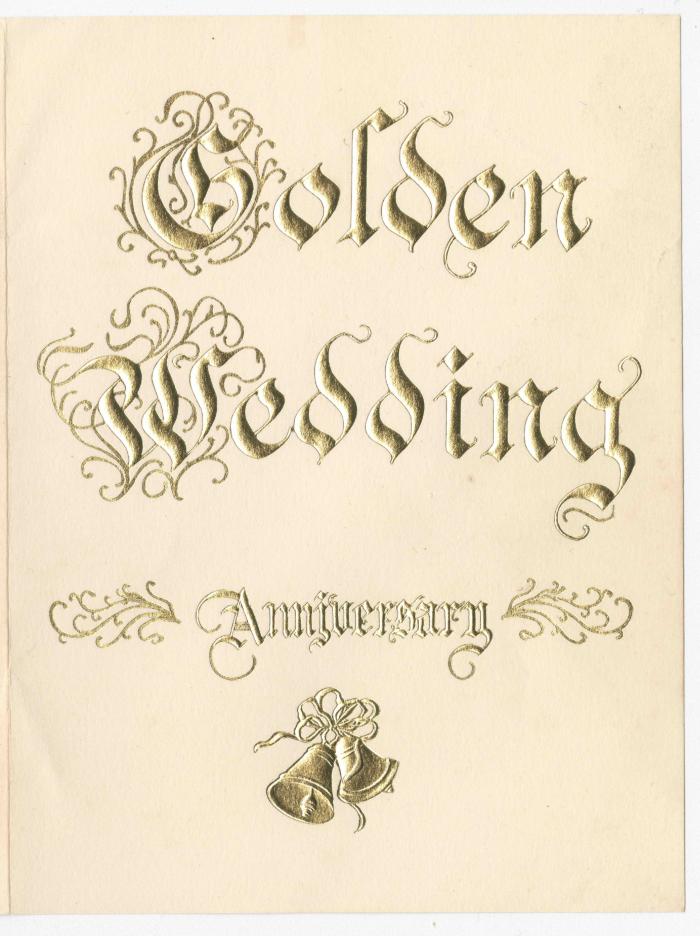 Golden
Wedding
Anniversary